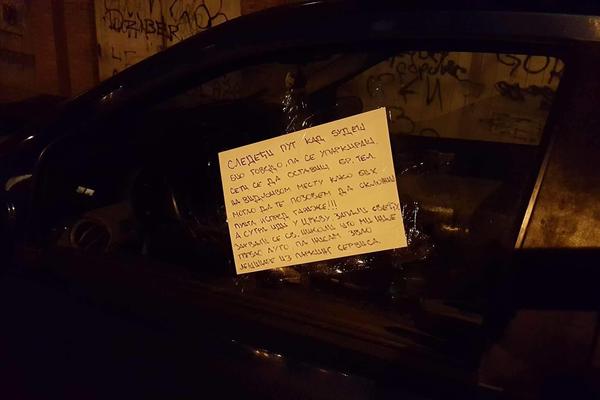 СЛЕДЕЋИ ПУТ КАД БУДЕШ
БИО ГОВЕДО, ПА СЕ УПАРКИРАШ,
СЕТИ СЕ ДА ОСТАВИШ БР. ТЕЛ.
НА ВИДЉИВОМ МЕСТУ КАКО БИХ
МОГАО ДА ТЕ ПОЗОВЕМ ДА СКЛОНИШ
ИСПРЕД ГАРАЖЕ!!!
А СУТРА ИДИ У ЦРКВУ, ЗАПАЛИ СВЕЋУ
ЗАХВАЛИ СЕ СВ. НИКОЛИ ШТО МИ НИЈЕ
ТРЕБАО АУТО ПА НИСАМ ЗВАО
ИЗ ПАРКИНГ СЕРВИСА
DŽIBER